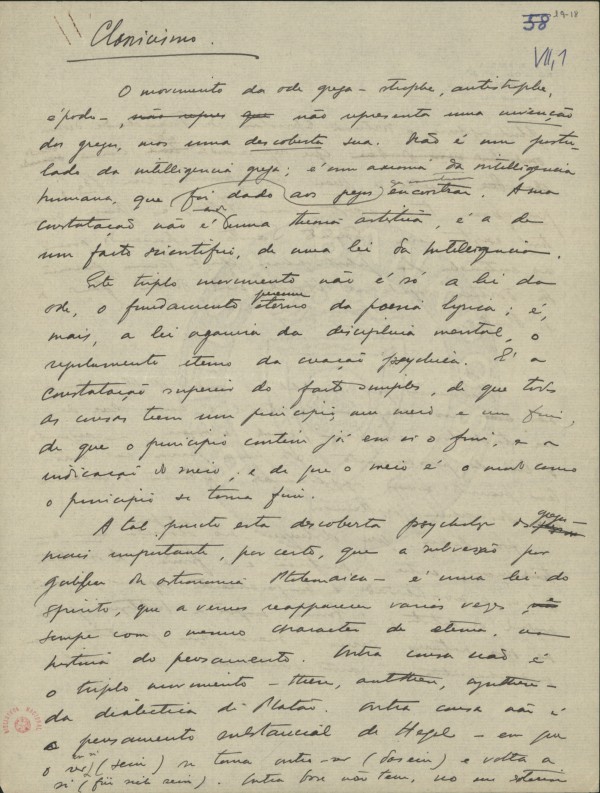 58
19-18
VII, 1
Classicismo.
O movimento da ode grega — strophe, antistrophe,
épodo — não representa uma invenção
dos gregos, mas uma descoberta sua. Não é um postu-
lado da intelligencia grega; é um axioma da intelligencia
humana, que foi dado aos gregos encontrar. A sua
constatação não é a de uma theoria artistica, é a de
um facto scientifico, de uma lei da intelligencia.
Este triplo movimento não é só a lei da
ode, o fundamento eterno perenne da poesia lyrica; é,
mais, a lei organica da disciplina mental, o
regulamento eterno da creação psychica. É a
constatação superior do facto simples, de que todas
as cousas teem um principio, um meio e um fim,
de que o principio contém já em si o fim, e a
indicação do meio, e de que o meio é o modo como
o principio se torna fim.
A tal ponto esta descoberta dos gregos —
mais importante, por certo, que a subversão por
da astronomia Ptolemaica — é uma lei do
espirito, que a vemos reapparecer varias vezes,
sempre com o mesmo character de eterna, na
historia do pensamento. Outra cousa não é
o triplo movimento — these, antithese, synthese —
da dialectica de Platão. Outra cousa não é
o pensamento substancial de Hegel — em que
o ser em si (sein) se torna outro-ser (dasein) e volta a
si (für sich sein). Outra base não tem, no seu
BIBLIOTECA NACIONAL